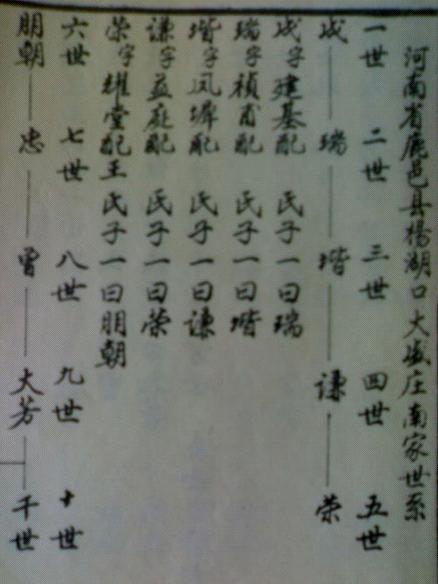 河南省鹿邑县杨湖口大盛庄南家世系
一世 二世 三世 四世 五世
成 瑞 堦 谦 荣
成字建基配 氏子一曰瑞
瑞字祯甫配 氏子一曰堦
堦字凤墀配 氏子一曰谦
谦字益庭配 氏子一曰荣
荣字耀堂配王氏子一曰朋朝
六世 七世 八世 九世 十世
朋朝 忠 曾 大芳 千世